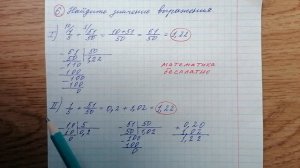 6) Найдите значение выражения
I) 1/5 + 51/50 = 10+51/50 = 51/50 = 1,22
51 | 50
50 | 1,22
110
100
100
100
0
математика
бесплатно
II) 1/5 + 51/50 = 0,2 + 1,02 = 1,22
10 | 5
10 | 0,2
0
51 | 50
50 | 1,02
100
100
0
+ 0,20
1,02
1,22